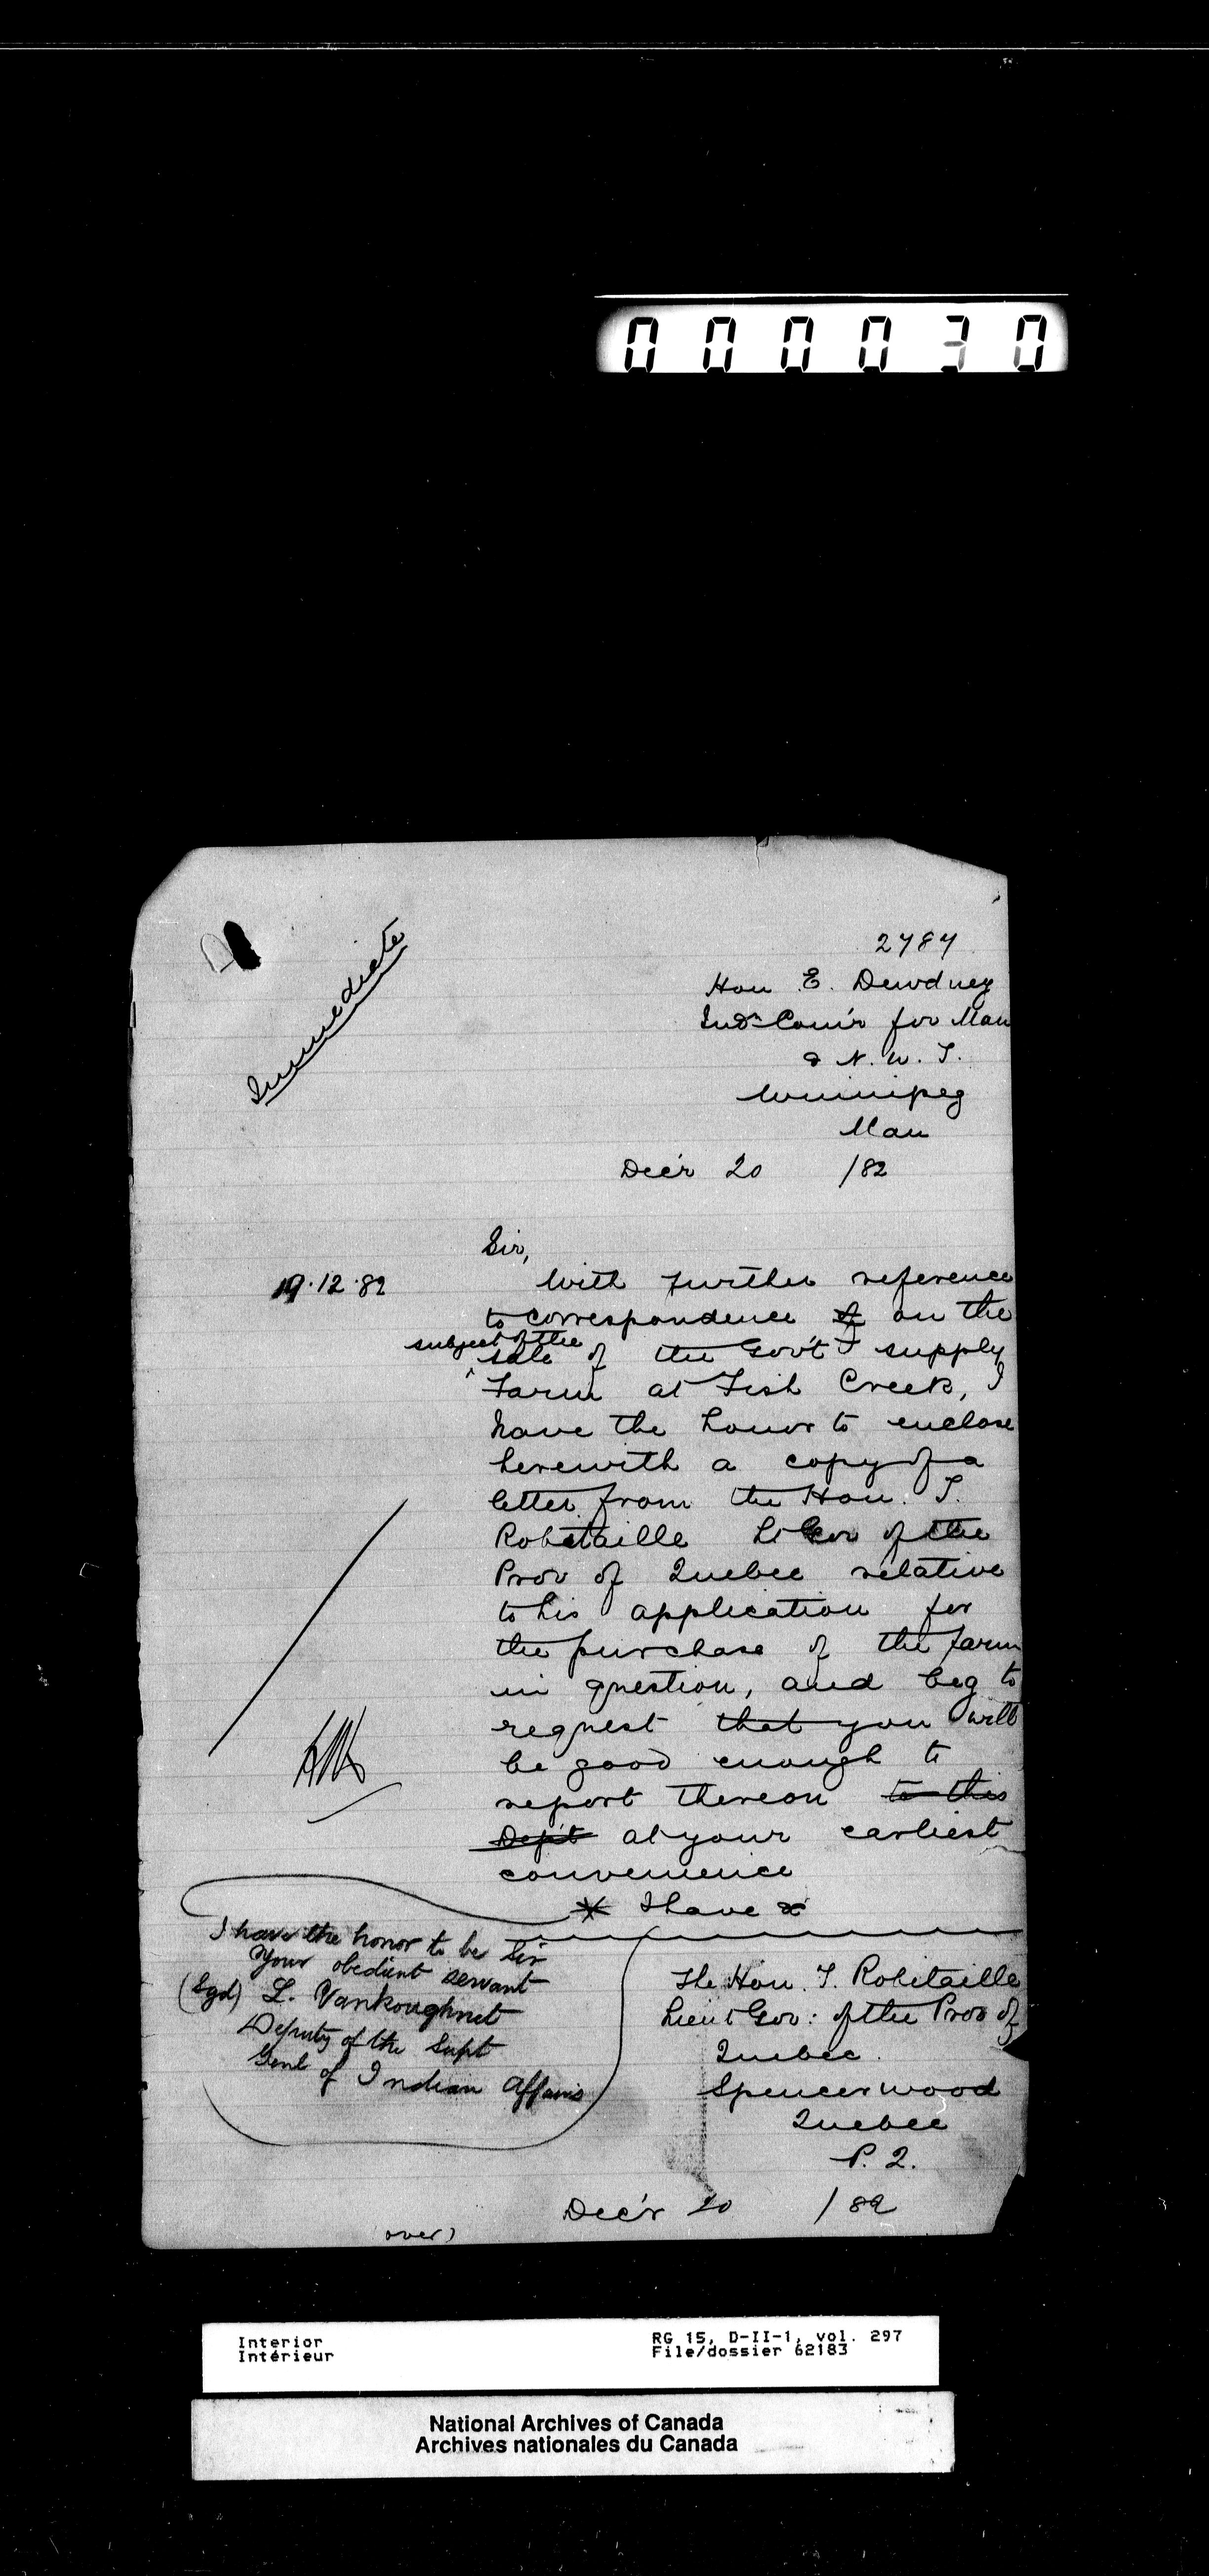 000030
Immediate
2787
Hon E. Dewdney
Indn Com'r for Man
& N. W. T.
Winnipeg
Man
Dec'r 20 /82
Sir,
19.12.82
With further reference
to correspondence of on the
subject of the
sale of the Gov't supply
Farm at Fish Creek, I
have the honor to enclose
herewith a copy of a
letter from the Hon. T.
Robitaille Lt Gov of the
Prov of Quebec relative
to his application for
the purchase of the farm
in question, and beg to
request that you will
be good enough to
report thereon to this
Dep't at your earliest
convenience
* I have &
I have the honor to be Sir
Your obedient servant
(Sgd) L. Vankoughnet
Deputy of the Supt
Genl of Indian Affairs
The Hon. T. Robitaille
Lieut Gov: of the Prov of
Quebec.
Spencer wood
Quebec
P. Q.
Dec'r 20 /82
over)
Interior
Intérieur
RG 15, D-II-1, vol. 297
File/dossier 62183
National Archives of Canada
Archives nationales du Canada